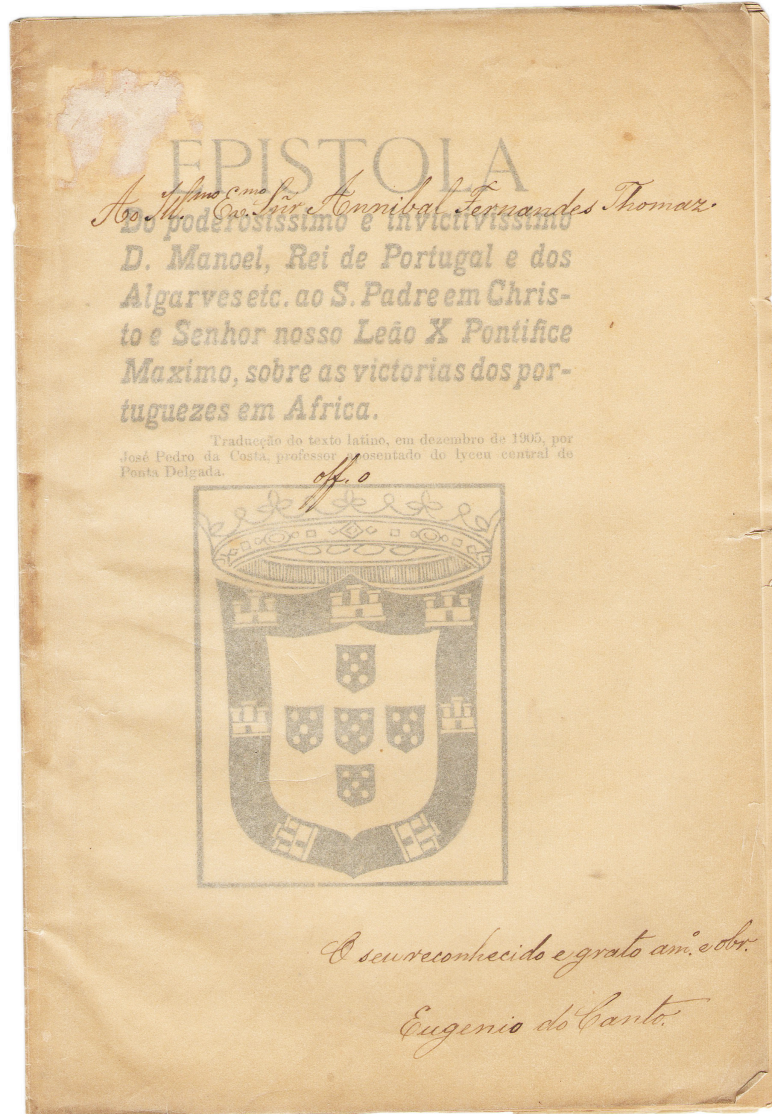 EPISTOLA
Ao Ill.mo Ex.mo Sñr Annibal Fernandes Thomaz.
Do poderosissimo e invictivissimo
D. Manoel, Rei de Portugal e dos
Algarves etc. ao S. Padre em Chris-
to e Senhor nosso Leão X Pontifice
Maximo, sobre as victorias dos por-
tuguezes em Africa.
Traducção do texto latino, em dezembro de 1905, por
José Pedro da Costa, professor aposentado do lyceu central de
Ponta Delgada.
off. o
O seu reconhecido e grato am.º e obr.
Eugenio do Canto.